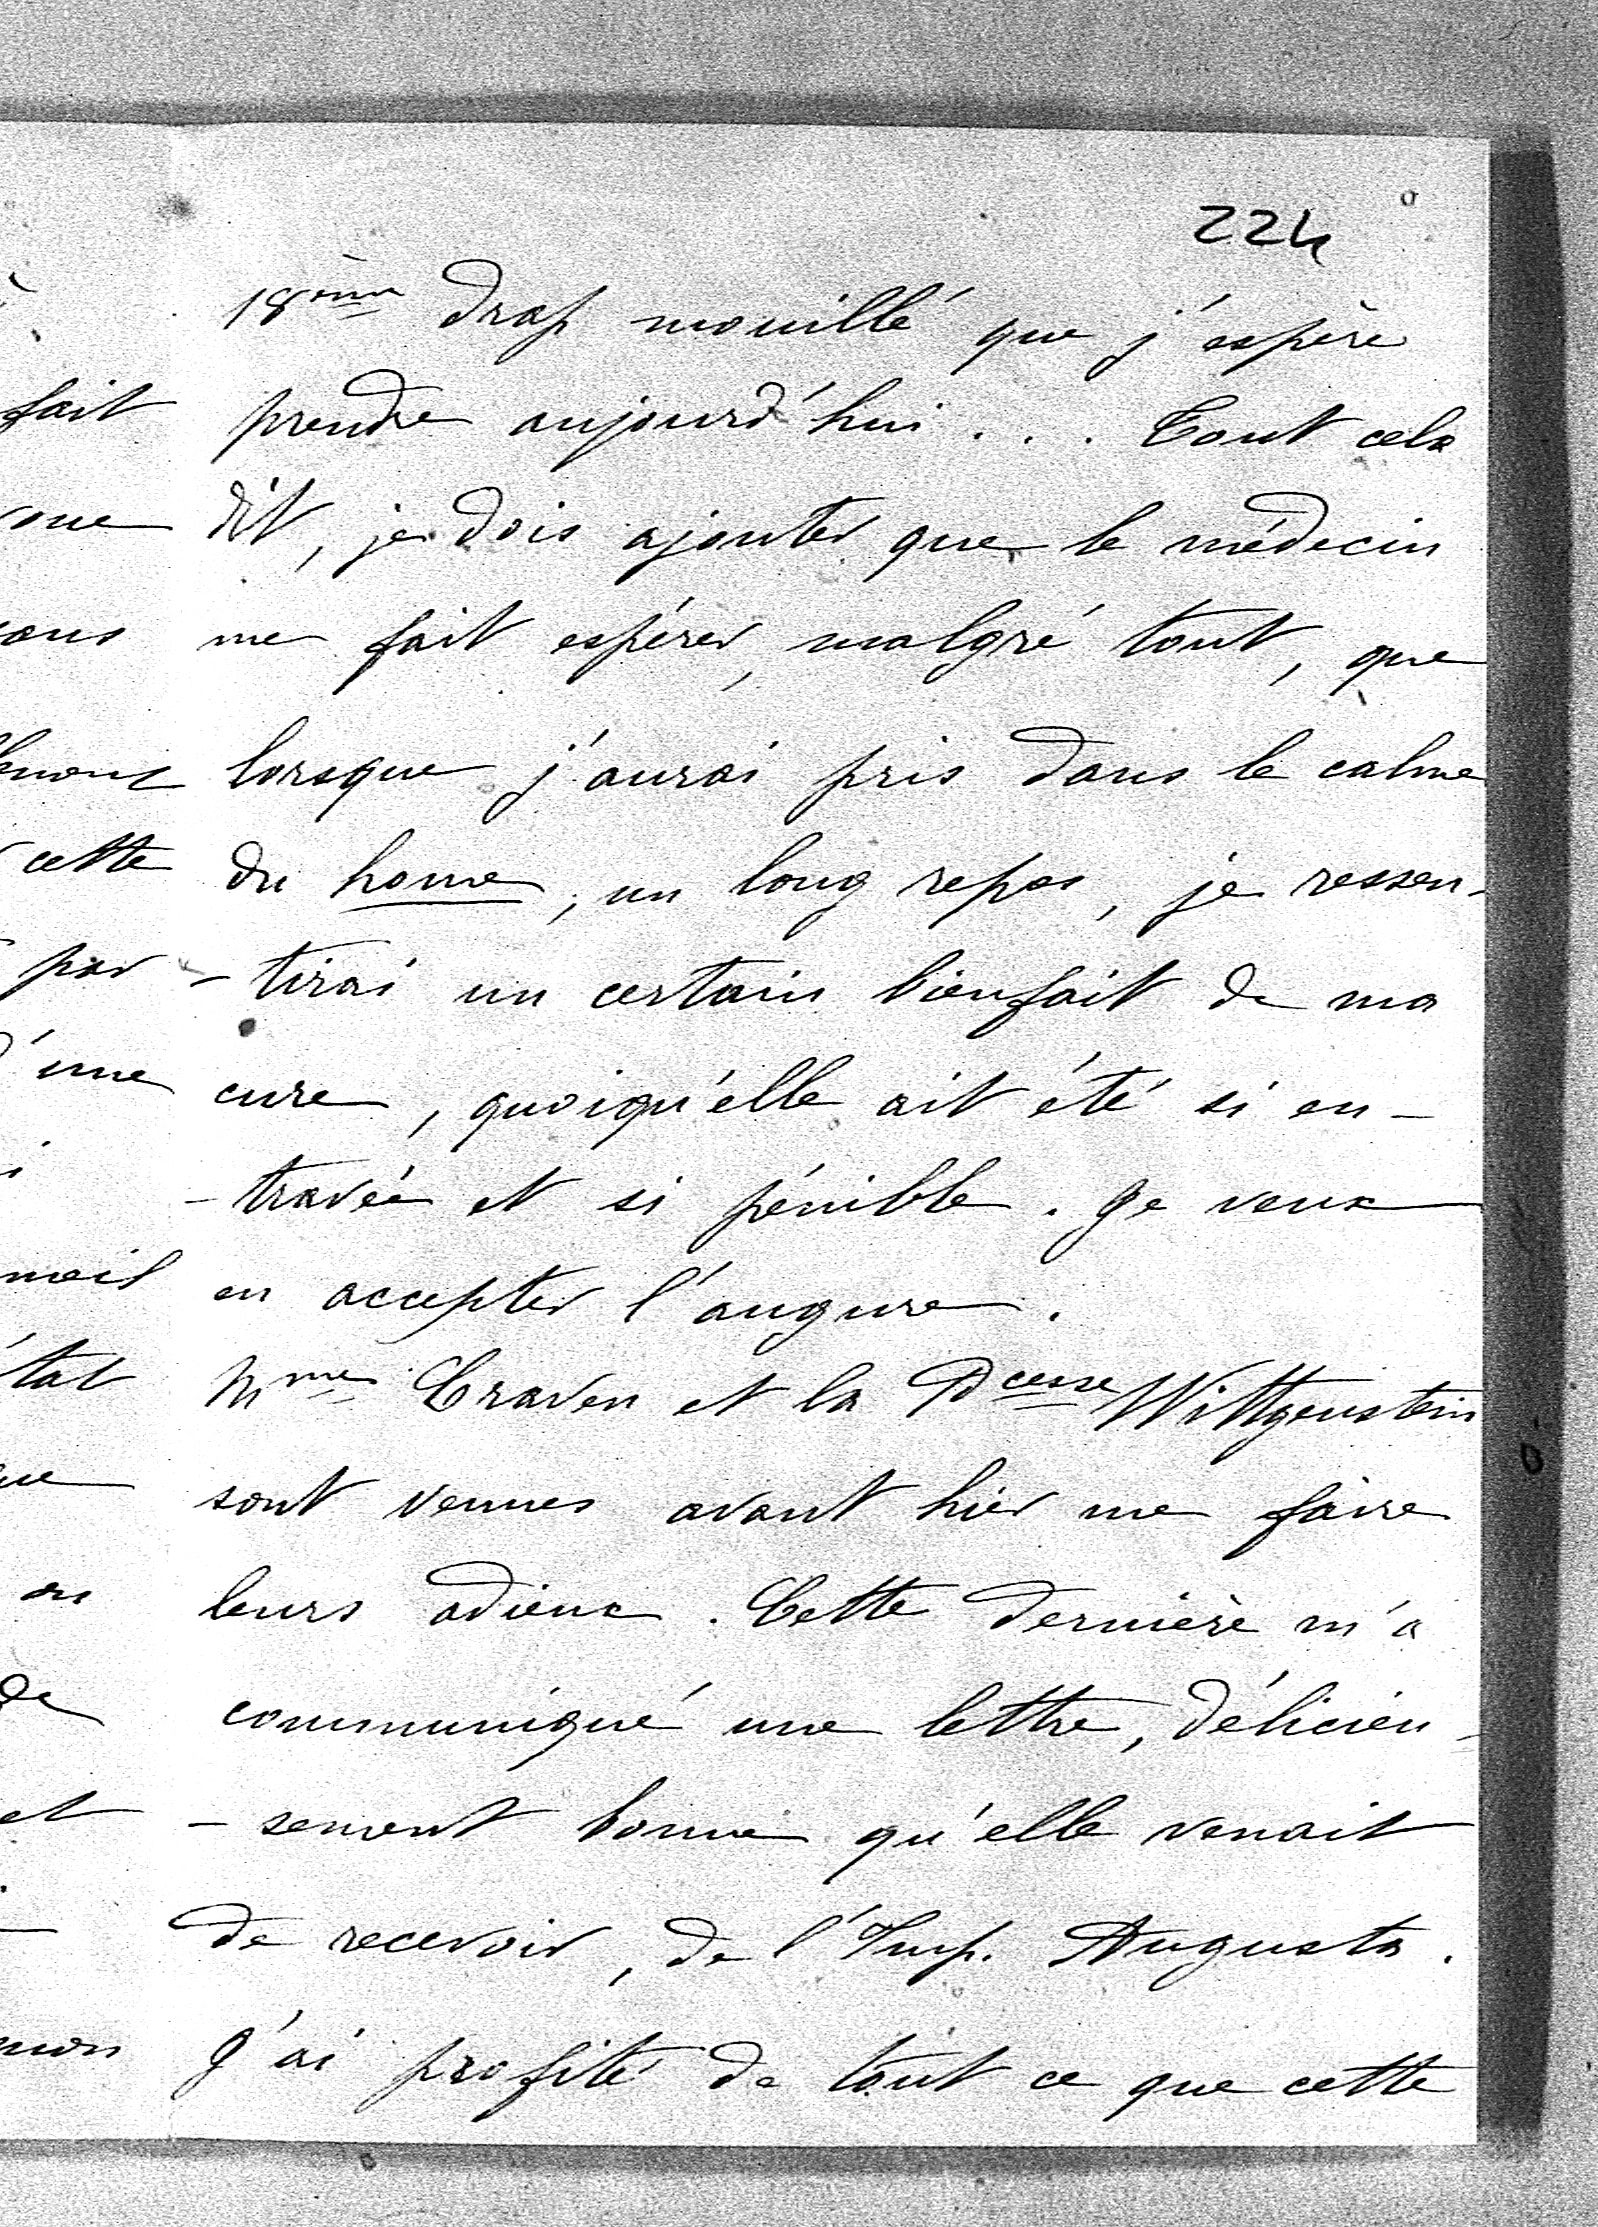 224
18ème drap mouillé que j'espère
prendre aujourd'hui ... Tout cela
dit, je dois ajouter que le médecin
me fait espérer, malgré tout, que
lorsque j'aurai pris dans le calme
du home, un long repos, je ressen-
-tirai un certain bienfait de ma
cure, quoiqu'elle ait été si en-
-travée et si pénible. Je veux
en accepter l'augure.
Mme Craven et la Pcesse Wittgenstein
sont venues avant hier me faire
leurs adieux. Cette dernière m'a
communiqué une lettre, délicieu-
-sement bonne qu'elle venait
de recevoir, de l'Imp. Augusta.
J'ai profité de tout ce que cette
fait
cette
par
d'une
de
et